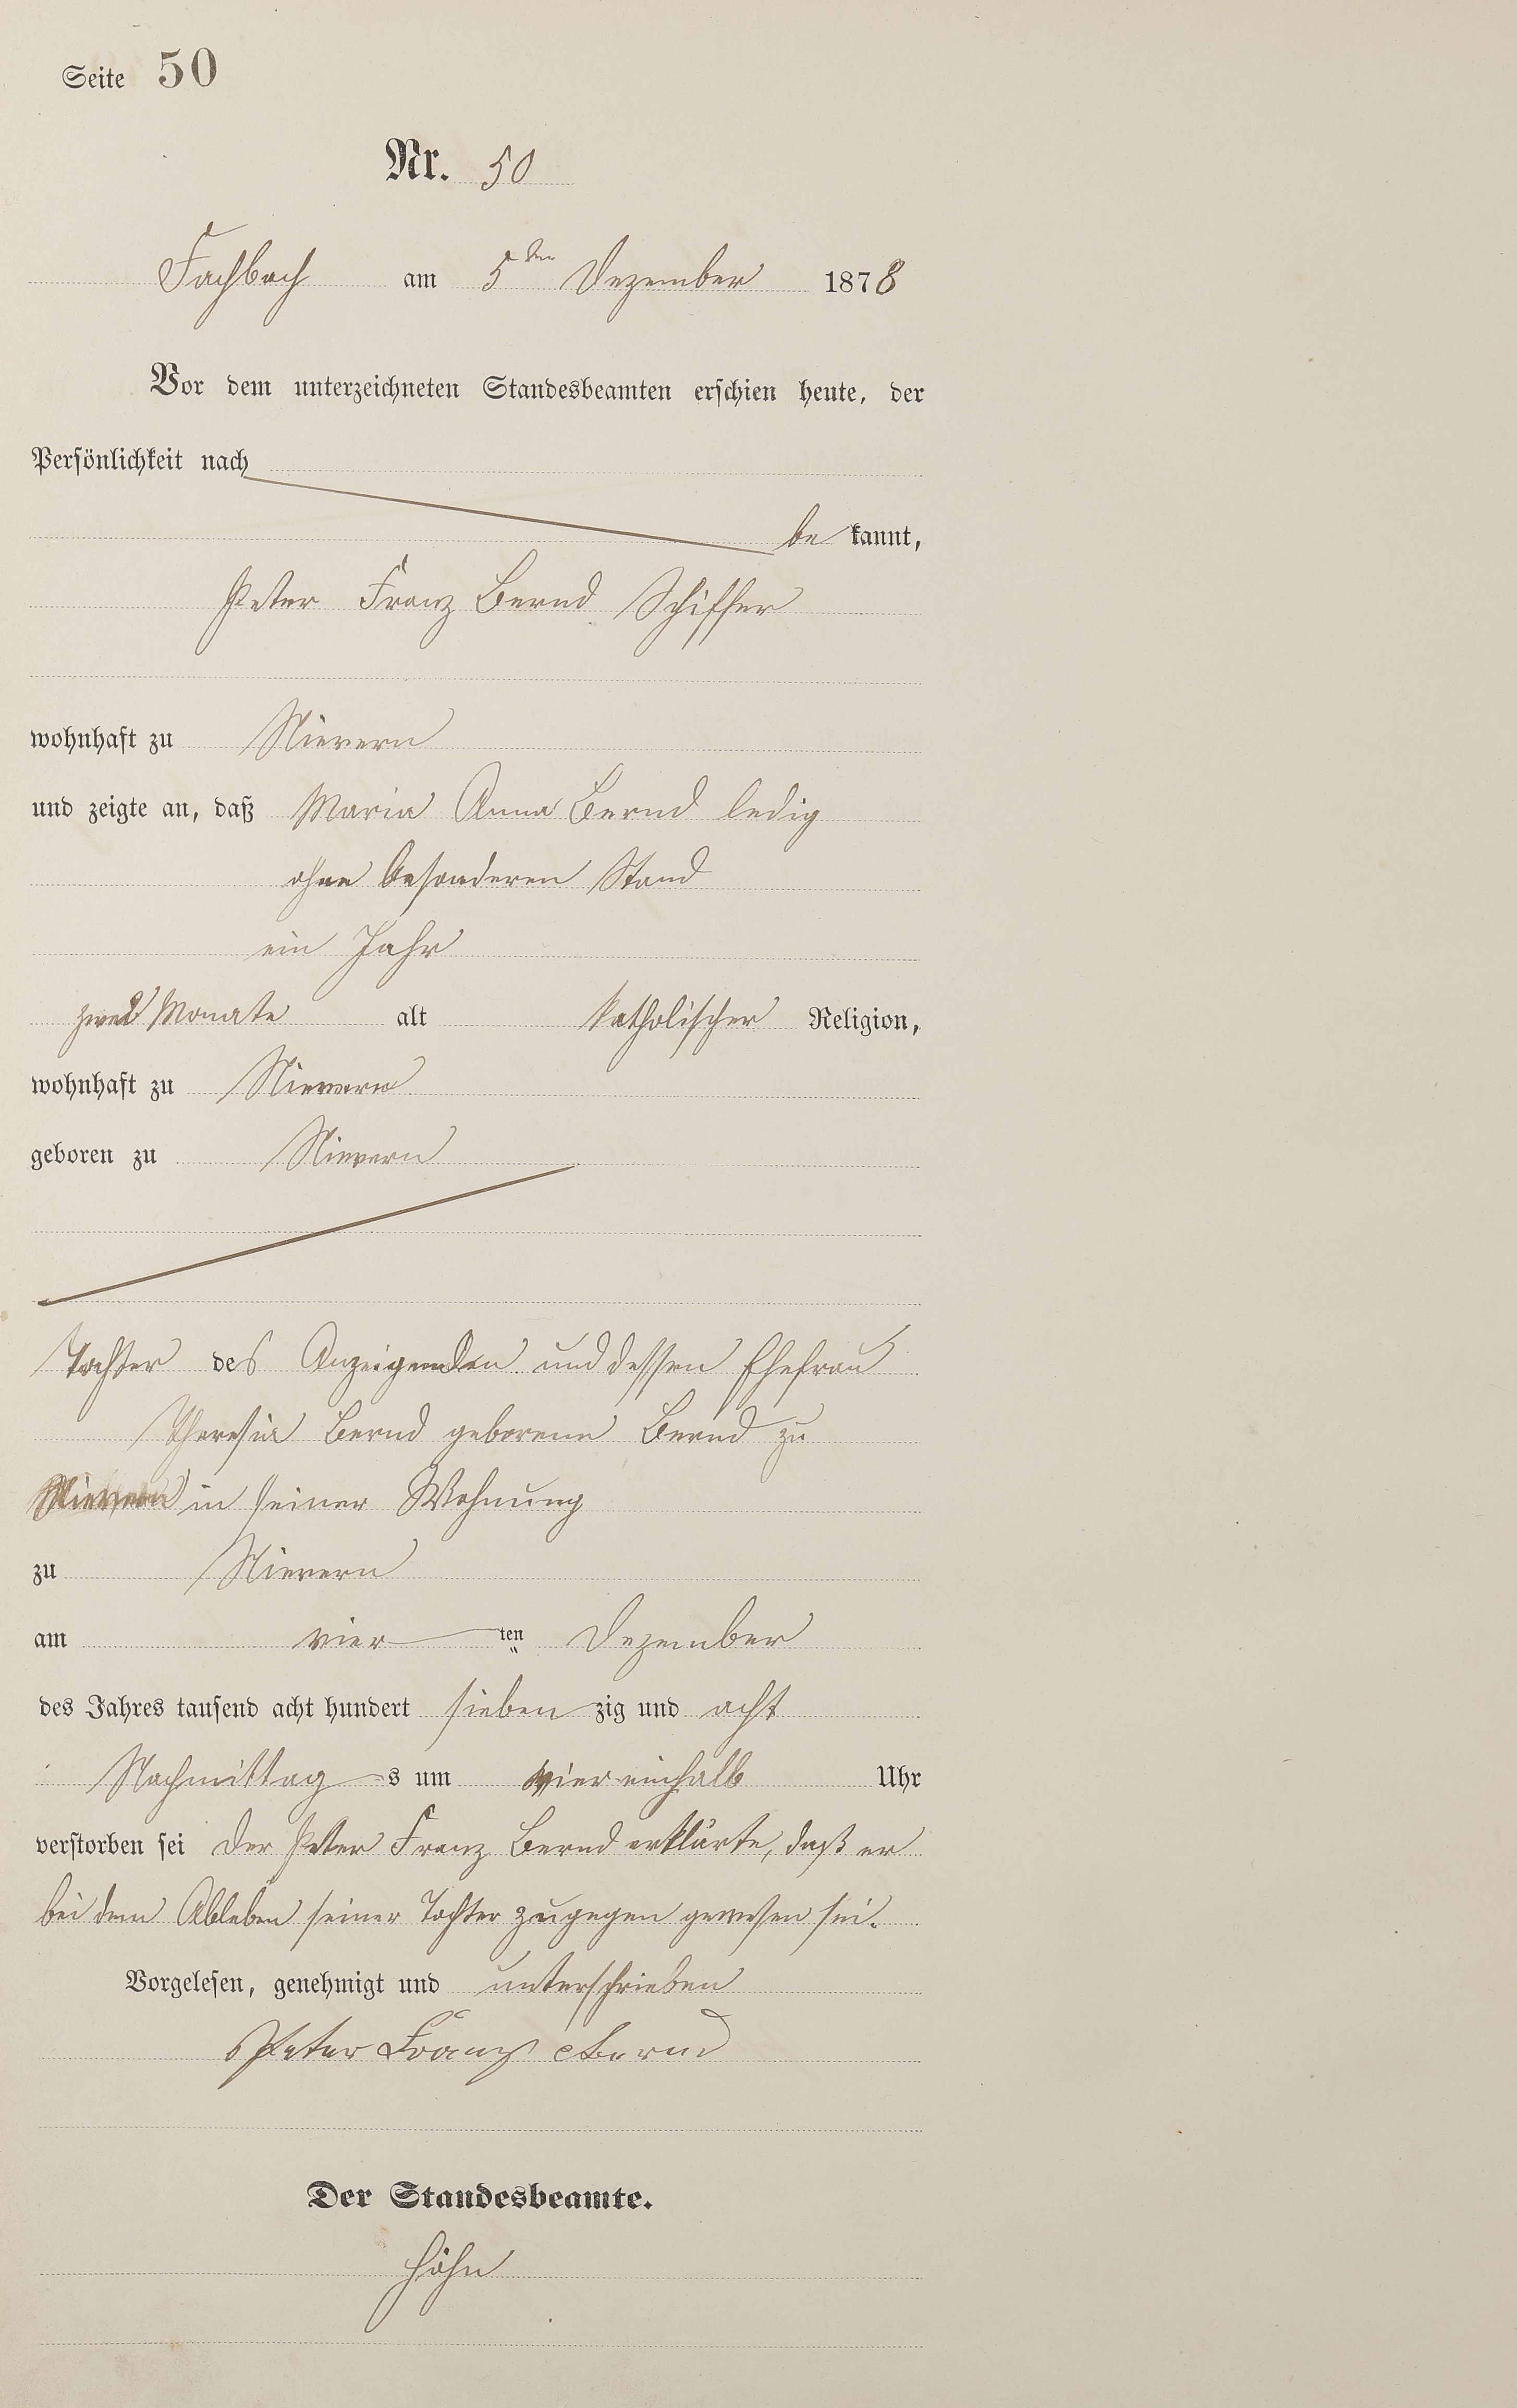 Seite 50
Nr. 50
Fachbach am 5ten Dezember 1878
Vor dem unterzeichneten Standesbeamten erschien heute, der
Persönlichkeit nach
be kannt,
Peter Franz Bernd Schiffer
wohnhaft zu Nievern
und zeigte an, daß Maria Anna Bernd ledig
ohne besonderen Stand
ein Jahr
zwei Monate alt katholischer Religion,
wohnhaft zu Nievern
geboren zu Nievern
Tochter des Anzeigenden und dessen Ehefrau
Theresia Bernd geborene Bernd zu
Nievern in seiner Wohnung
zu Nievern
am vier ten Dezember
des Jahres tausend acht hundert sieben zig und acht
Nachmittag s um viereinhalb Uhr
verstorben sei Der Peter Franz Bernd erklärte, daß er
bei dem Ableben seiner Tochter zugegen gewesen sei.
Vorgelesen, genehmigt und unterschrieben
Peter Franz Bernd
Der Standesbeamte.
Höhn